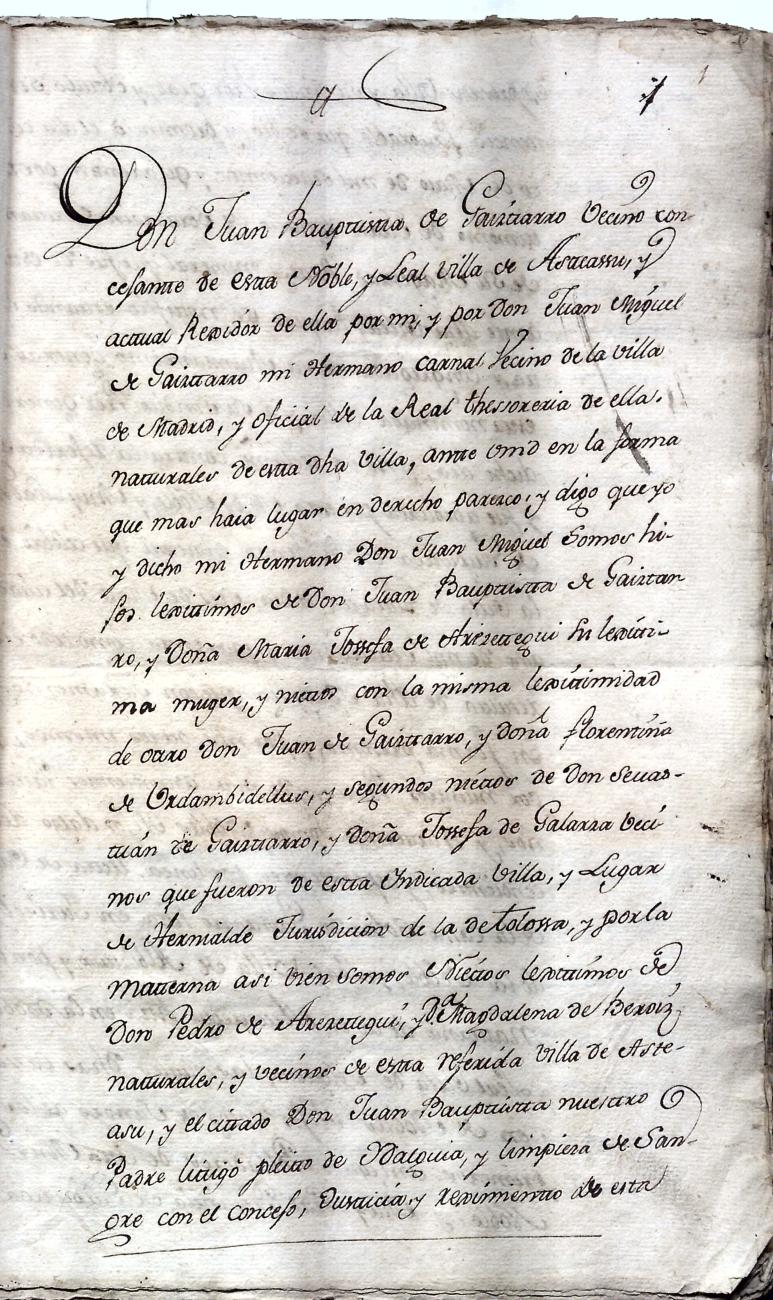 a
1
1
Don Juan Bauptista de Gaiztarro Vecino con-
cesante de esta Noble, y Leal villa de Asteassu, y
actual Rexidor de ella por mi, y por Don Juan Miguel
de Gaiztarro mi Hermano carnal Vecino de la villa
de Madrid, y oficial de la Real thessoreria de ella.
naturales de esta dha villa, ante vmd en la forma
que mas haia lugar en derecho parezco, y digo que yo
y dicho mi Hermano Don Juan Miguel Somos hi-
jos lexitimos de Don Juan Bauptista de Gaiztar
ro, y Doña Maria Jossefa de Arezttegui su lexiti-
ma muger, y nietos con la misma lexitimidad
de otro Don Juan de Gaiztarro, y doña florentina
de Urdambidellus, y segundos niettos de Don Sevas-
tián de Gaiztarro, y Doña Jossefa de Galarza Veci
nos que fueron de esta Yndicada Villa, y Lugar
de Hernialde Jurisdicion de la de tolossa, y por la
matterna asi bien somos Niettos lexittimos de
Don Pedro de Arezttegui, y Dª Magdalena de Beroiz
natturales, y vecinos de esta referida villa de Aste-
asu, y el cittado Don Juan Bauptistta nuestro
Padre litigò pleitto de Ydalguia, y limpieza de San-
gre con el Concejo, Justicia, y reximientto de esta